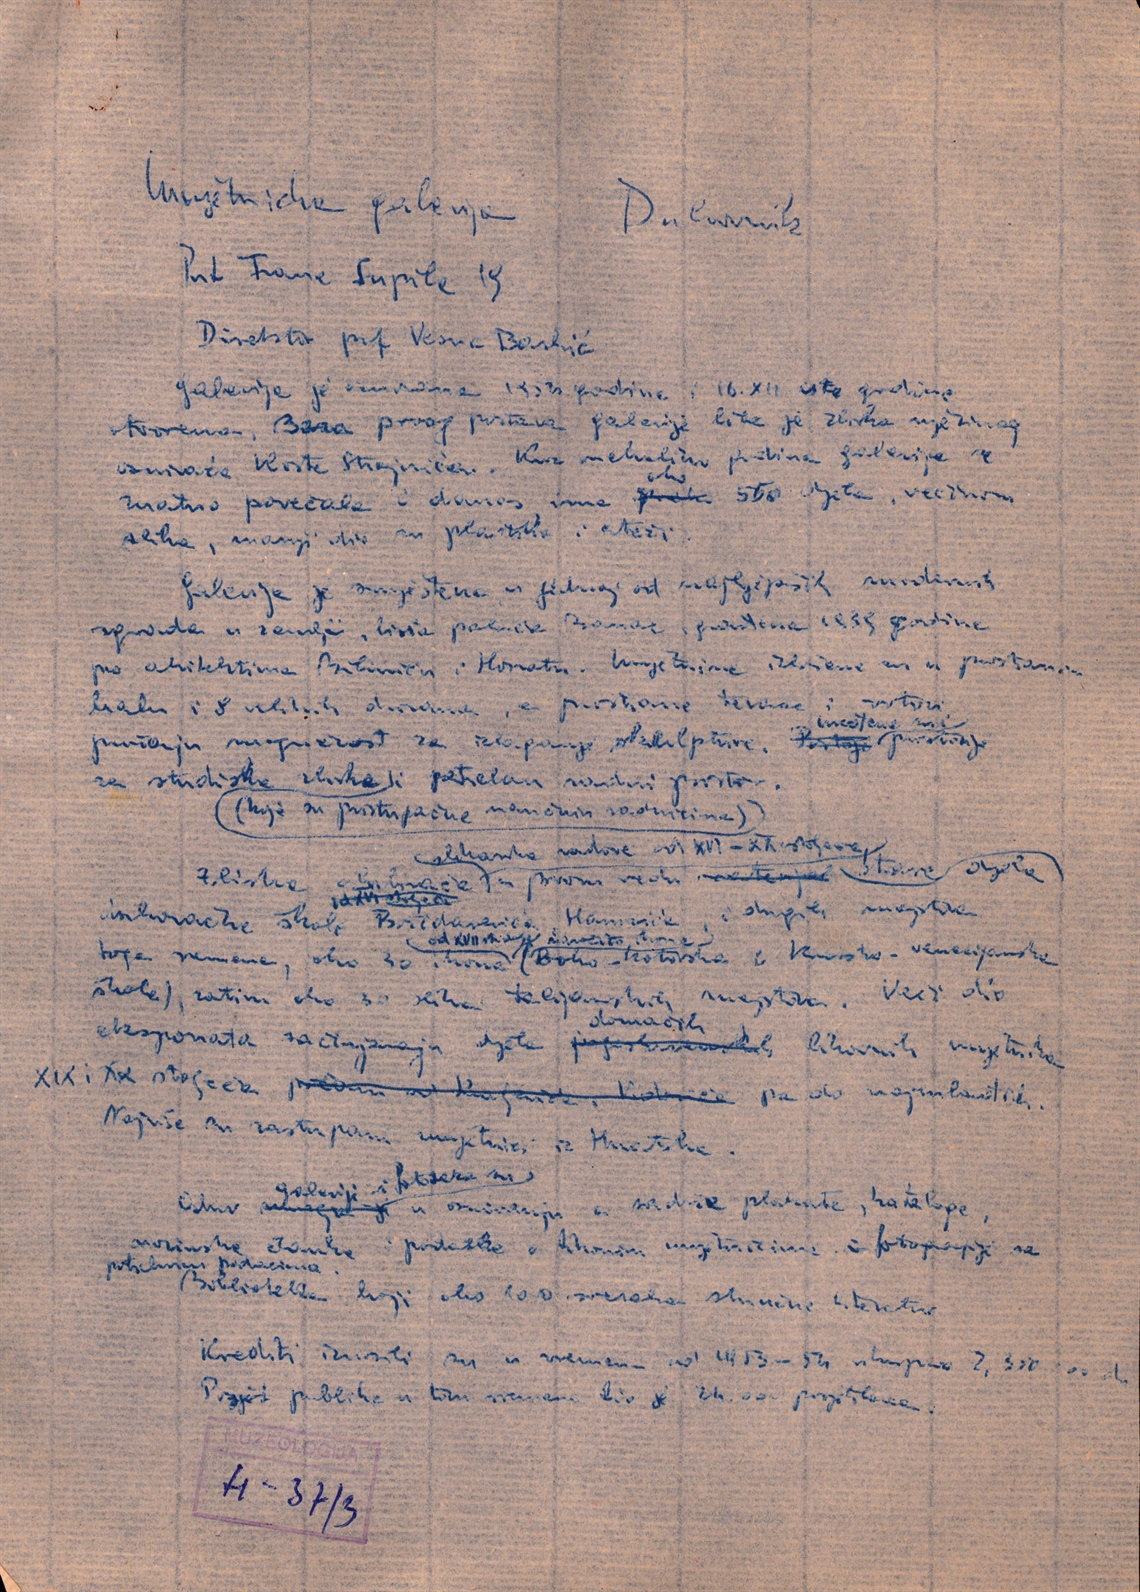 Umjetnička galerija Dubrovnik
Put Frane Supila 19
Direktor prof Vesna Barbić
Galerija je osnovana 1953 godine i 16. XII iste godine
otvorena, Baza prvog postava galerije bila je zbirka njezinog
osnivača Koste Strajnića. Kroz nekoliko godina galerija se
oko
znatno povećala i danas ima preko 500 djela, većinom
slika, manji dio su plastike i crteži.
Galerija je smještena u jednoj od najljepših modernih
zgrada u zemlji, bivša palača Banac, građena 1939 godine
po arhitektima Biliniću i Horvatu. Umjetnine izložene su u prostranom
halu i 8 velikih dvorana, a prostrane terase i vrtovi
uređene su i
pružaju mogućnost za izlaganje skulpture. Postoje prostorije
za studijske zbirke i potreban radni prostor.
(koje su pristupačne naučnim radnicima)
slikarske radove od XVI – XX stoljeća
Zbirka obuhvaća u prvom redu starije djela
od XVI stoljeća
dubrovačke škole Božidarevića, Hamzića, i drugih majstora
od XVII
toga vremena, oko 30 ikona (Boko-kotorska i Kretsko-venecijanska
škola), zatim oko 30 slika talijanskih majstora. Veći dio
domaćih
eksponata sačinjavaju djela jugoslavenskih likovnih umjetnika
XIX i XX stoljeća pa do najmlađih.
Najviše su zastupani umjetnici iz Hrvatske.
galerije i fototeka su
Arhiv u osnivanju a sadrže plakate, kataloge,
novinske članke i podatke o likovnim umjetnicima i fotografije sa
potrebnim podacima.
Biblioteka broji oko 200 svezaka stručne literature
Krediti iznosili su u vremenu od 1953–54 ukupno
Posjet publike u tom vremenu bio je posjetilaca.
MUZEOLOGIJA
H - 37/3